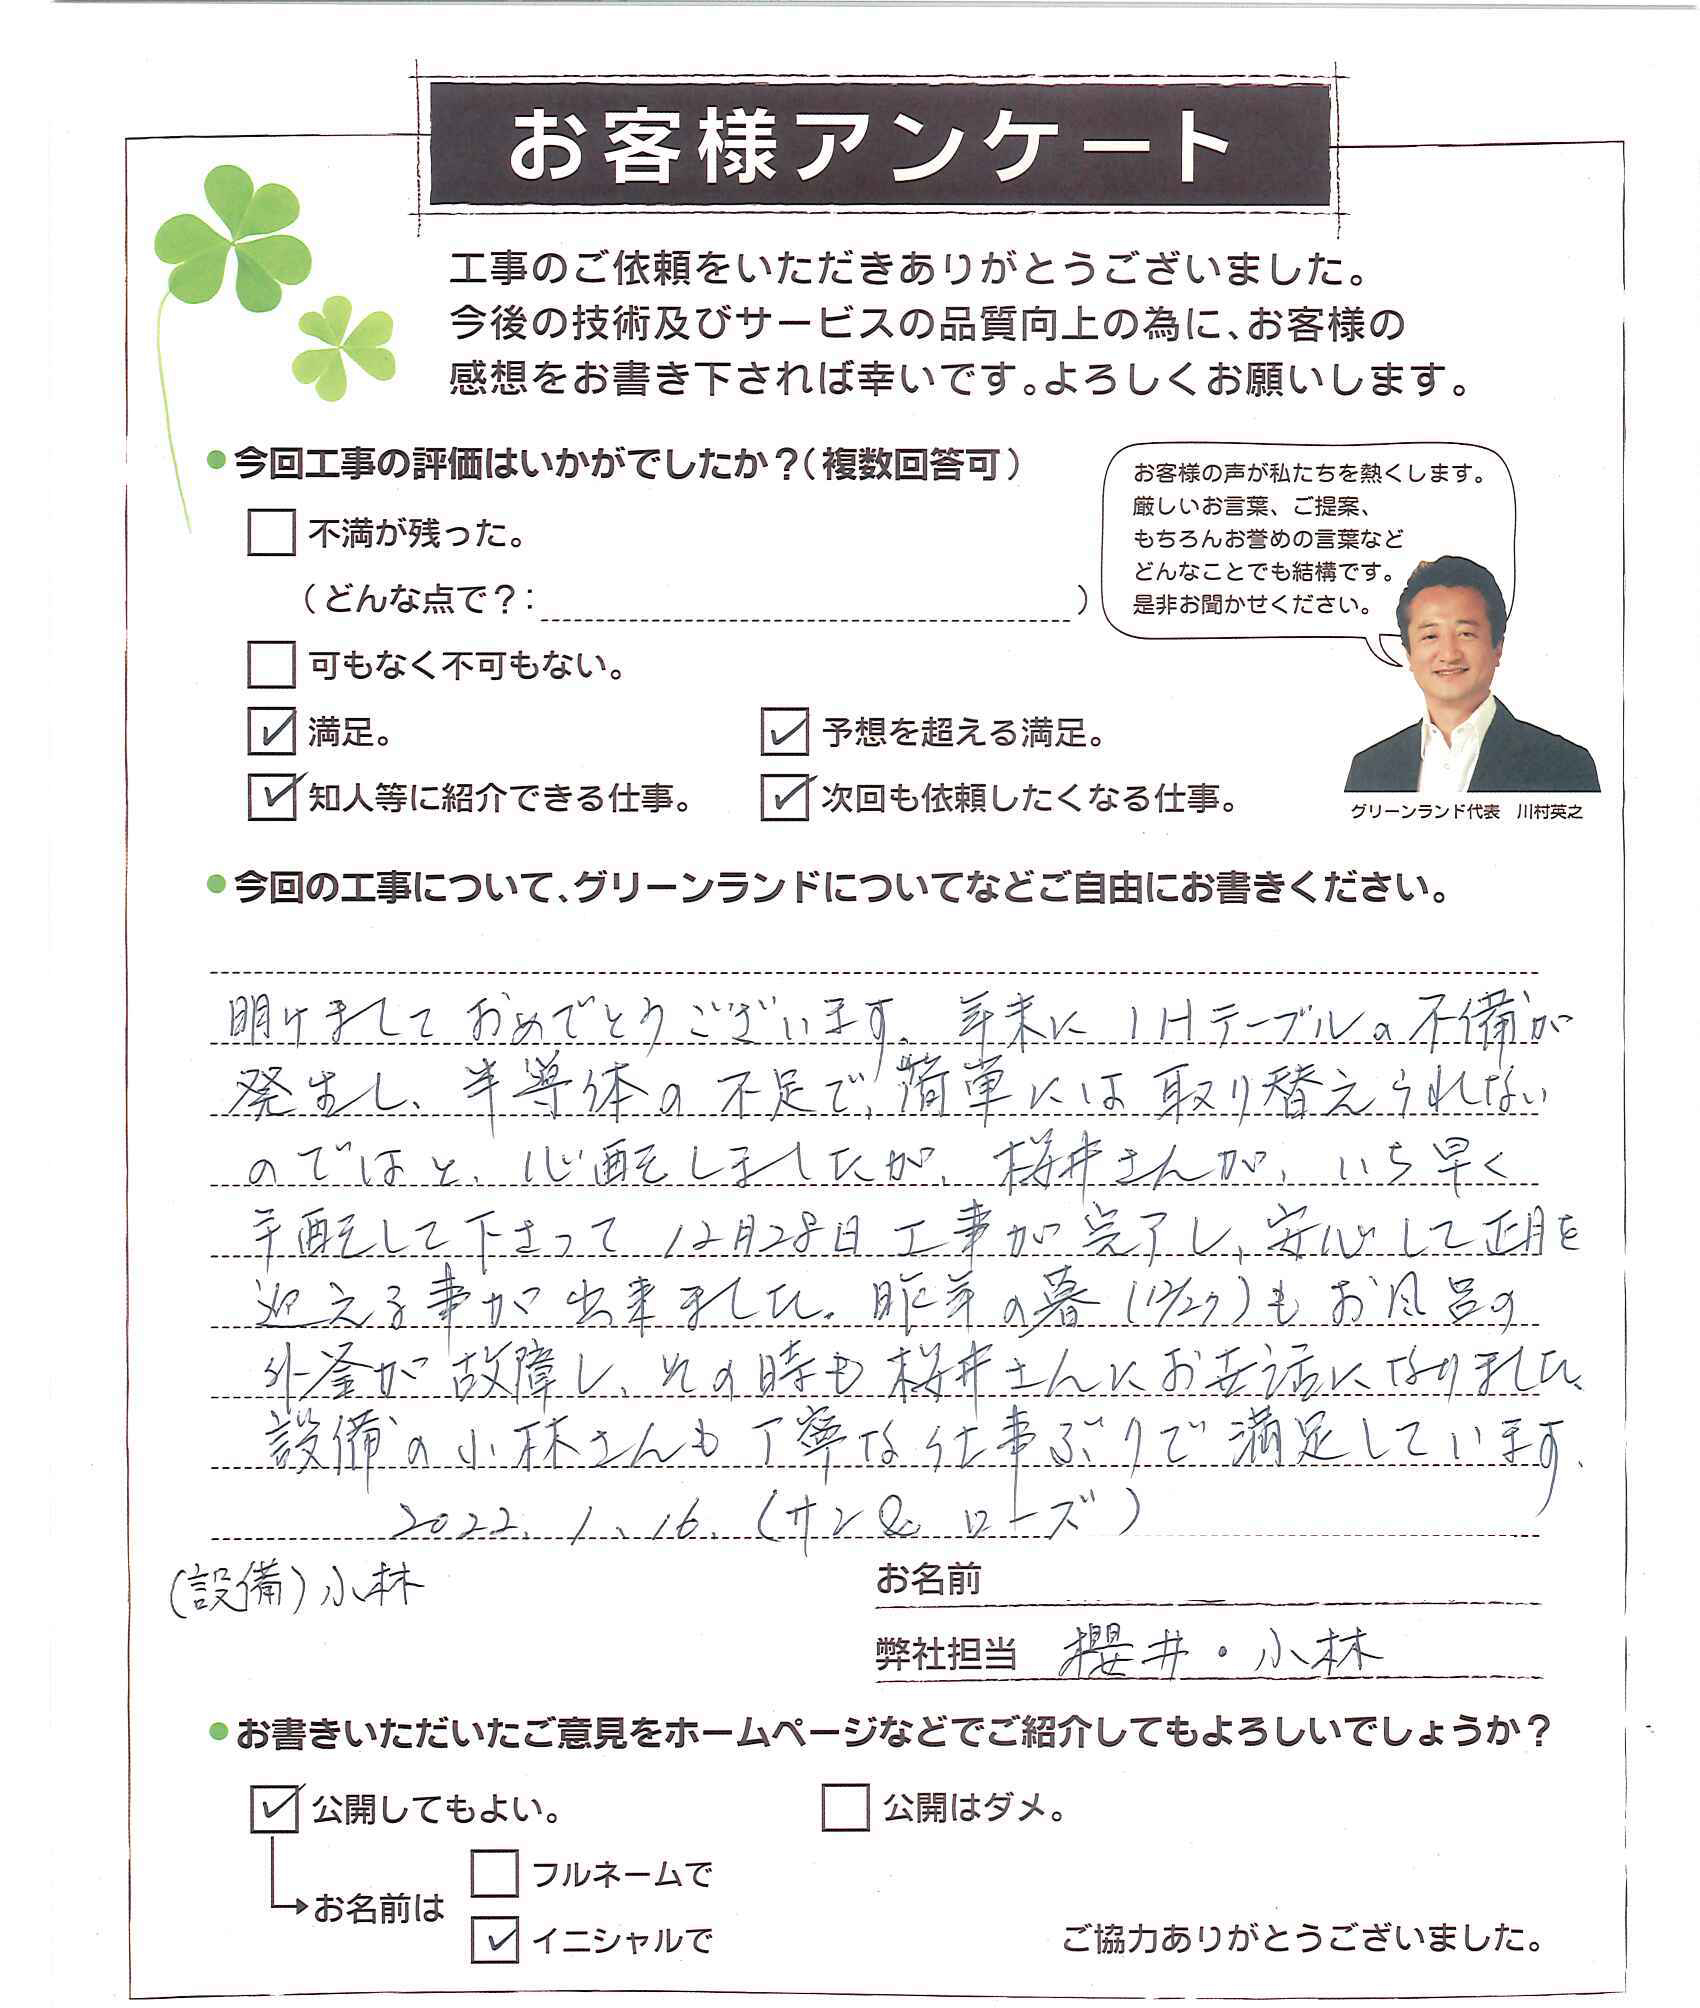 お客様アンケート
工事のご依頼をいただきありがとうございました。
今後の技術及びサービスの品質向上の為に、お客様の
感想をお書き下されば幸いです。よろしくお願いします。
●今回工事の評価はいかがでしたか？（複数回答可）
□ 不満が残った。
（どんな点で？：　　）
□ 可もなく不可もない。
☑ 満足。
☑ 予想を超える満足。
☑ 知人等に紹介できる仕事。
☑ 次回も依頼したくなる仕事。
お客様の声が私たちを熱くします。
厳しいお言葉、ご提案、
もちろんお誉めの言葉など
どんなことでも結構です。
是非お聞かせください。
グリーンランド代表　川村英之
●今回の工事について、グリーンランドについてなどご自由にお書きください。
明けましておめでとうございます。年末にIHテーブルの不備が
発生し、半導体の不足で、簡単には取り替えられない
のではと、心配をしましたが、桜井さんが、いち早く
手配をして下さって12月28日工事が完了し、安心して正月を
迎える事が出来ました。昨年の暮(12/27)もお風呂の
外釜が故障し、その時も桜井さんにお世話になりました、
設備の小林さんも丁寧な仕事ぶりで満足しています、
2022.1.16.（サン＆ローズ）
(設備)小林
お名前
弊社担当　櫻井・小林
●お書きいただいたご意見をホームページなどでご紹介してもよろしいでしょうか？
☑ 公開してもよい。
□ 公開はダメ。
→お名前は
□ フルネームで
☑ イニシャルで
ご協力ありがとうございました。